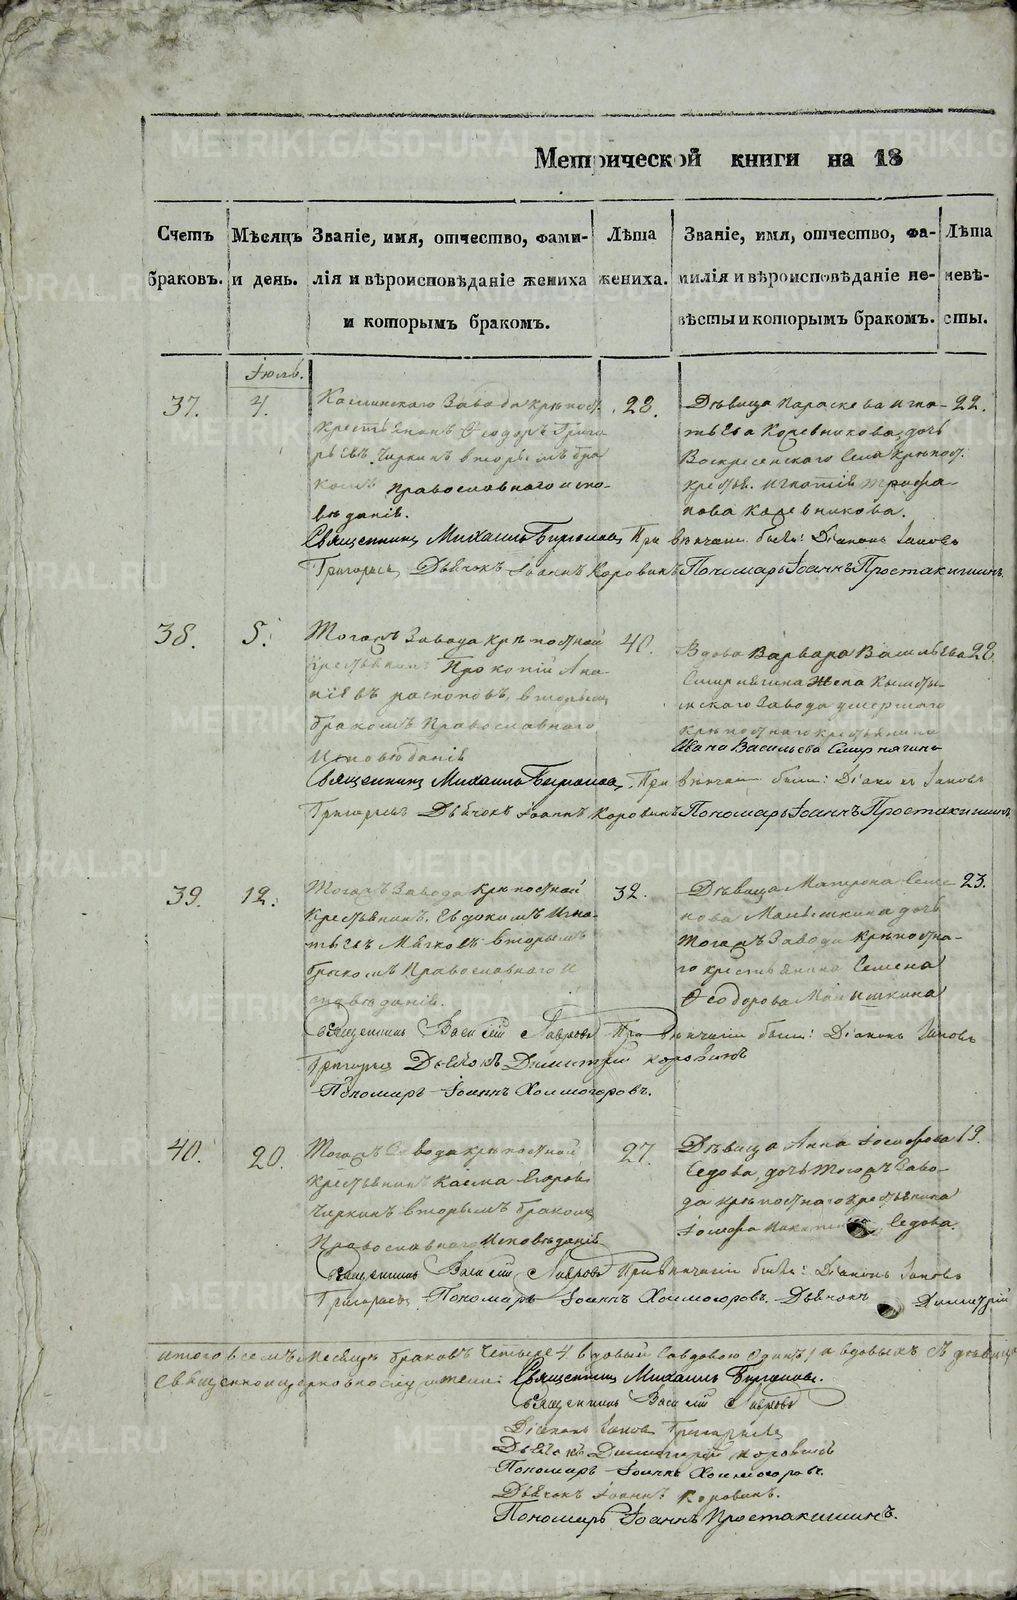 Метрической книги на 18
Счетъ браковъ.
Мѣсяцъ и день.
Званіе, имя, отчество, фами-
лія и вѣроисповѣданіе жениха
и которымъ бракомъ.
Лѣта жениха.
Званіе, имя, отчество, фа-
милія и вѣроисповѣданіе не-
вѣсты и которымъ бракомъ.
Лѣта невѣ-
сты.
Іюль.
37.
4.
Каслинскаго Завода крѣпост.
крестьянинъ Ѳеодоръ Григо
рьевъ Чиркинъ вторымъ бра
комъ православнаго испо
вѣданія.
28.
Дѣвица Параскева Игна-
тьева Коревникова, дочь
Воскресенскаго Села крѣпост.
крестья. Игнатія Трофи
мова Коревникова.
22.
Священникъ Михаилъ Бирюковъ При вѣнчаніи были: Діаконъ Іаковъ
Григорьевъ Дьячокъ Іоаннъ Коровинъ Пономарь Іоаннъ Простакишинъ.
38.
5.
Тогожъ Завода крѣпостной
крестьянинъ Прокопій Ана
ніевъ распоповъ, вторымъ
бракомъ Православнаго
Исповѣданія
40.
Вдова Варвара Васильева
Смирнягина Жена Кышты-
мскаго Завода умершаго
крѣпостнаго крестьянина
Ивана Васильева Смирнягина
28
Священникъ Михаилъ Бирюковъ. При вѣнчаніи были: Діаконъ Іаковъ
Григорьевъ Дьячокъ Іоаннъ Коровинъ Пономарь Іоаннъ Простакишинъ
39.
12.
Тогожъ Завода крѣпостной
Крестьянинъ Евдокимъ Игна-
тьевъ Мягковъ вторымъ
бракомъ Православнаго и
сповѣданія.
32.
Дѣвица Матрона Семе
нова Мамышкина дочь
Тогожъ Завода крѣпостна-
го крестьянина Семена
Ѳеодорова Мамышкина
23.
Священникъ Василій Лавровъ При вѣнчаніи были: Діаконъ Іаковъ
Григорьевъ Дьячокъ Димитрій Коровинъ
Пономарь Іоаннъ Холмогоровъ.
40.
20.
Тогожъ Завода крѣпостной
Крестьянинъ Касма Егоровъ
Чиркинъ вторымъ бракомъ
Православнаго Исповѣданія
27.
Дѣвица Анна Іосифова
Седова, дочь Тогожъ Заво-
да крѣпостнаго крестьянина
Іосифа Седова.
19.
Священникъ Василій Лавровъ При вѣнчаніи были: Діаконъ Іаковъ
Григорьевъ Пономарь Іоаннъ Холмогоровъ. Дьячокъ Димитрій
Итого всемъ Месяцѣ браковъ Четыре 4. вдовый Совдовою Одинъ 1 а вдовыхъ
Священноцерковнослужители: Священникъ Михаилъ Бирюковъ.
Священникъ Василій Лавровъ
Діаконъ Іаковъ Григорьевъ
Дьячокъ Димитрій Коровинъ
Пономарь Іоаннъ Холмогоровъ.
Дьячокъ Іоаннъ Коровинъ.
Пономарь Іоаннъ Простакишинъ.
METRIKI.GASO-URAL.RU